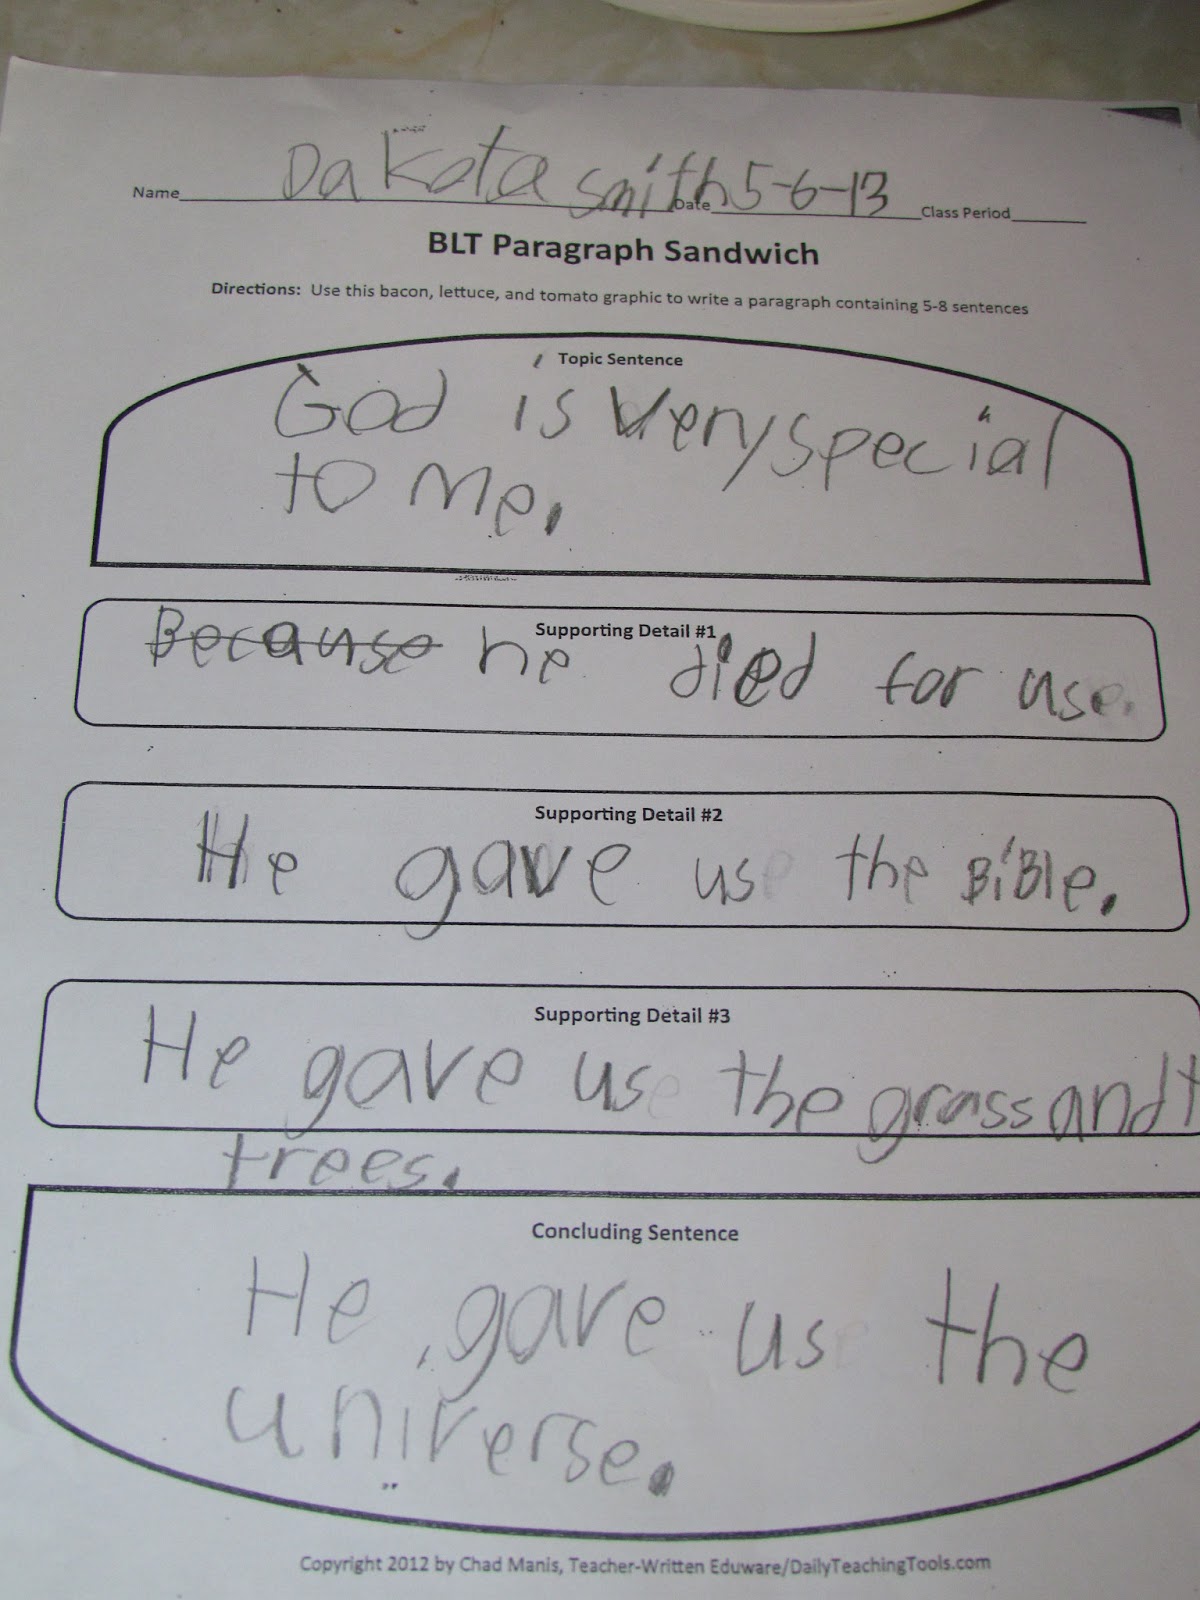 Name Dakota Smith Date 5-6-13 Class Period
BLT Paragraph Sandwich
Directions: Use this bacon, lettuce, and tomato graphic to write a paragraph containing 5-8 sentences
Topic Sentence
God is very special
to me.
Supporting Detail #1
Because he died for us.
Supporting Detail #2
He gave us the BiBle.
Supporting Detail #3
He gave us the grass and t
trees.
Concluding Sentence
He gave us the
universe.
Copyright 2012 by Chad Manis, Teacher-Written Eduware/DailyTeachingTools.com